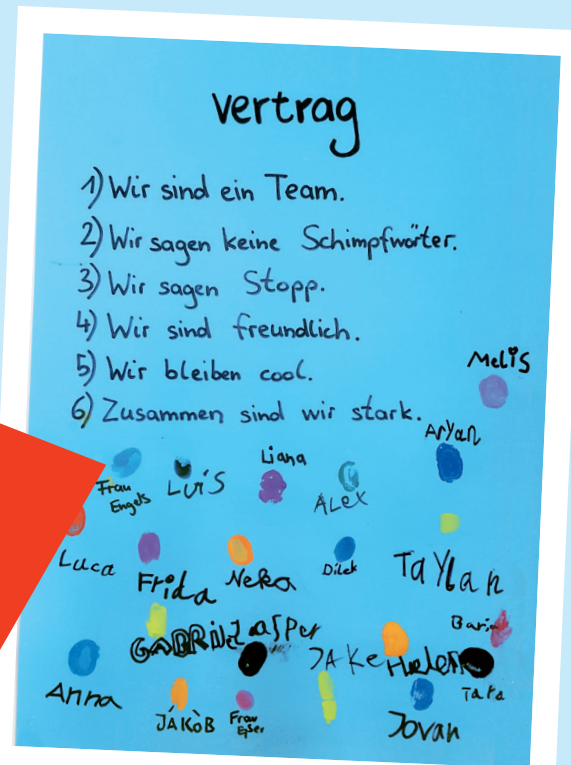 Vertrag
1) Wir sind ein Team.
2) Wir sagen keine Schimpfwörter.
3) Wir sagen Stopp.
4) Wir sind freundlich.
5) Wir bleiben cool.
6) Zusammen sind wir stark.
Melis
Aryan
Liana
Frau
Engels
Luis
ALEX
Luca
Frida
Neka
Dilek
TaYlan
JAKe
Anna
JAKOB
Frau
Jovan